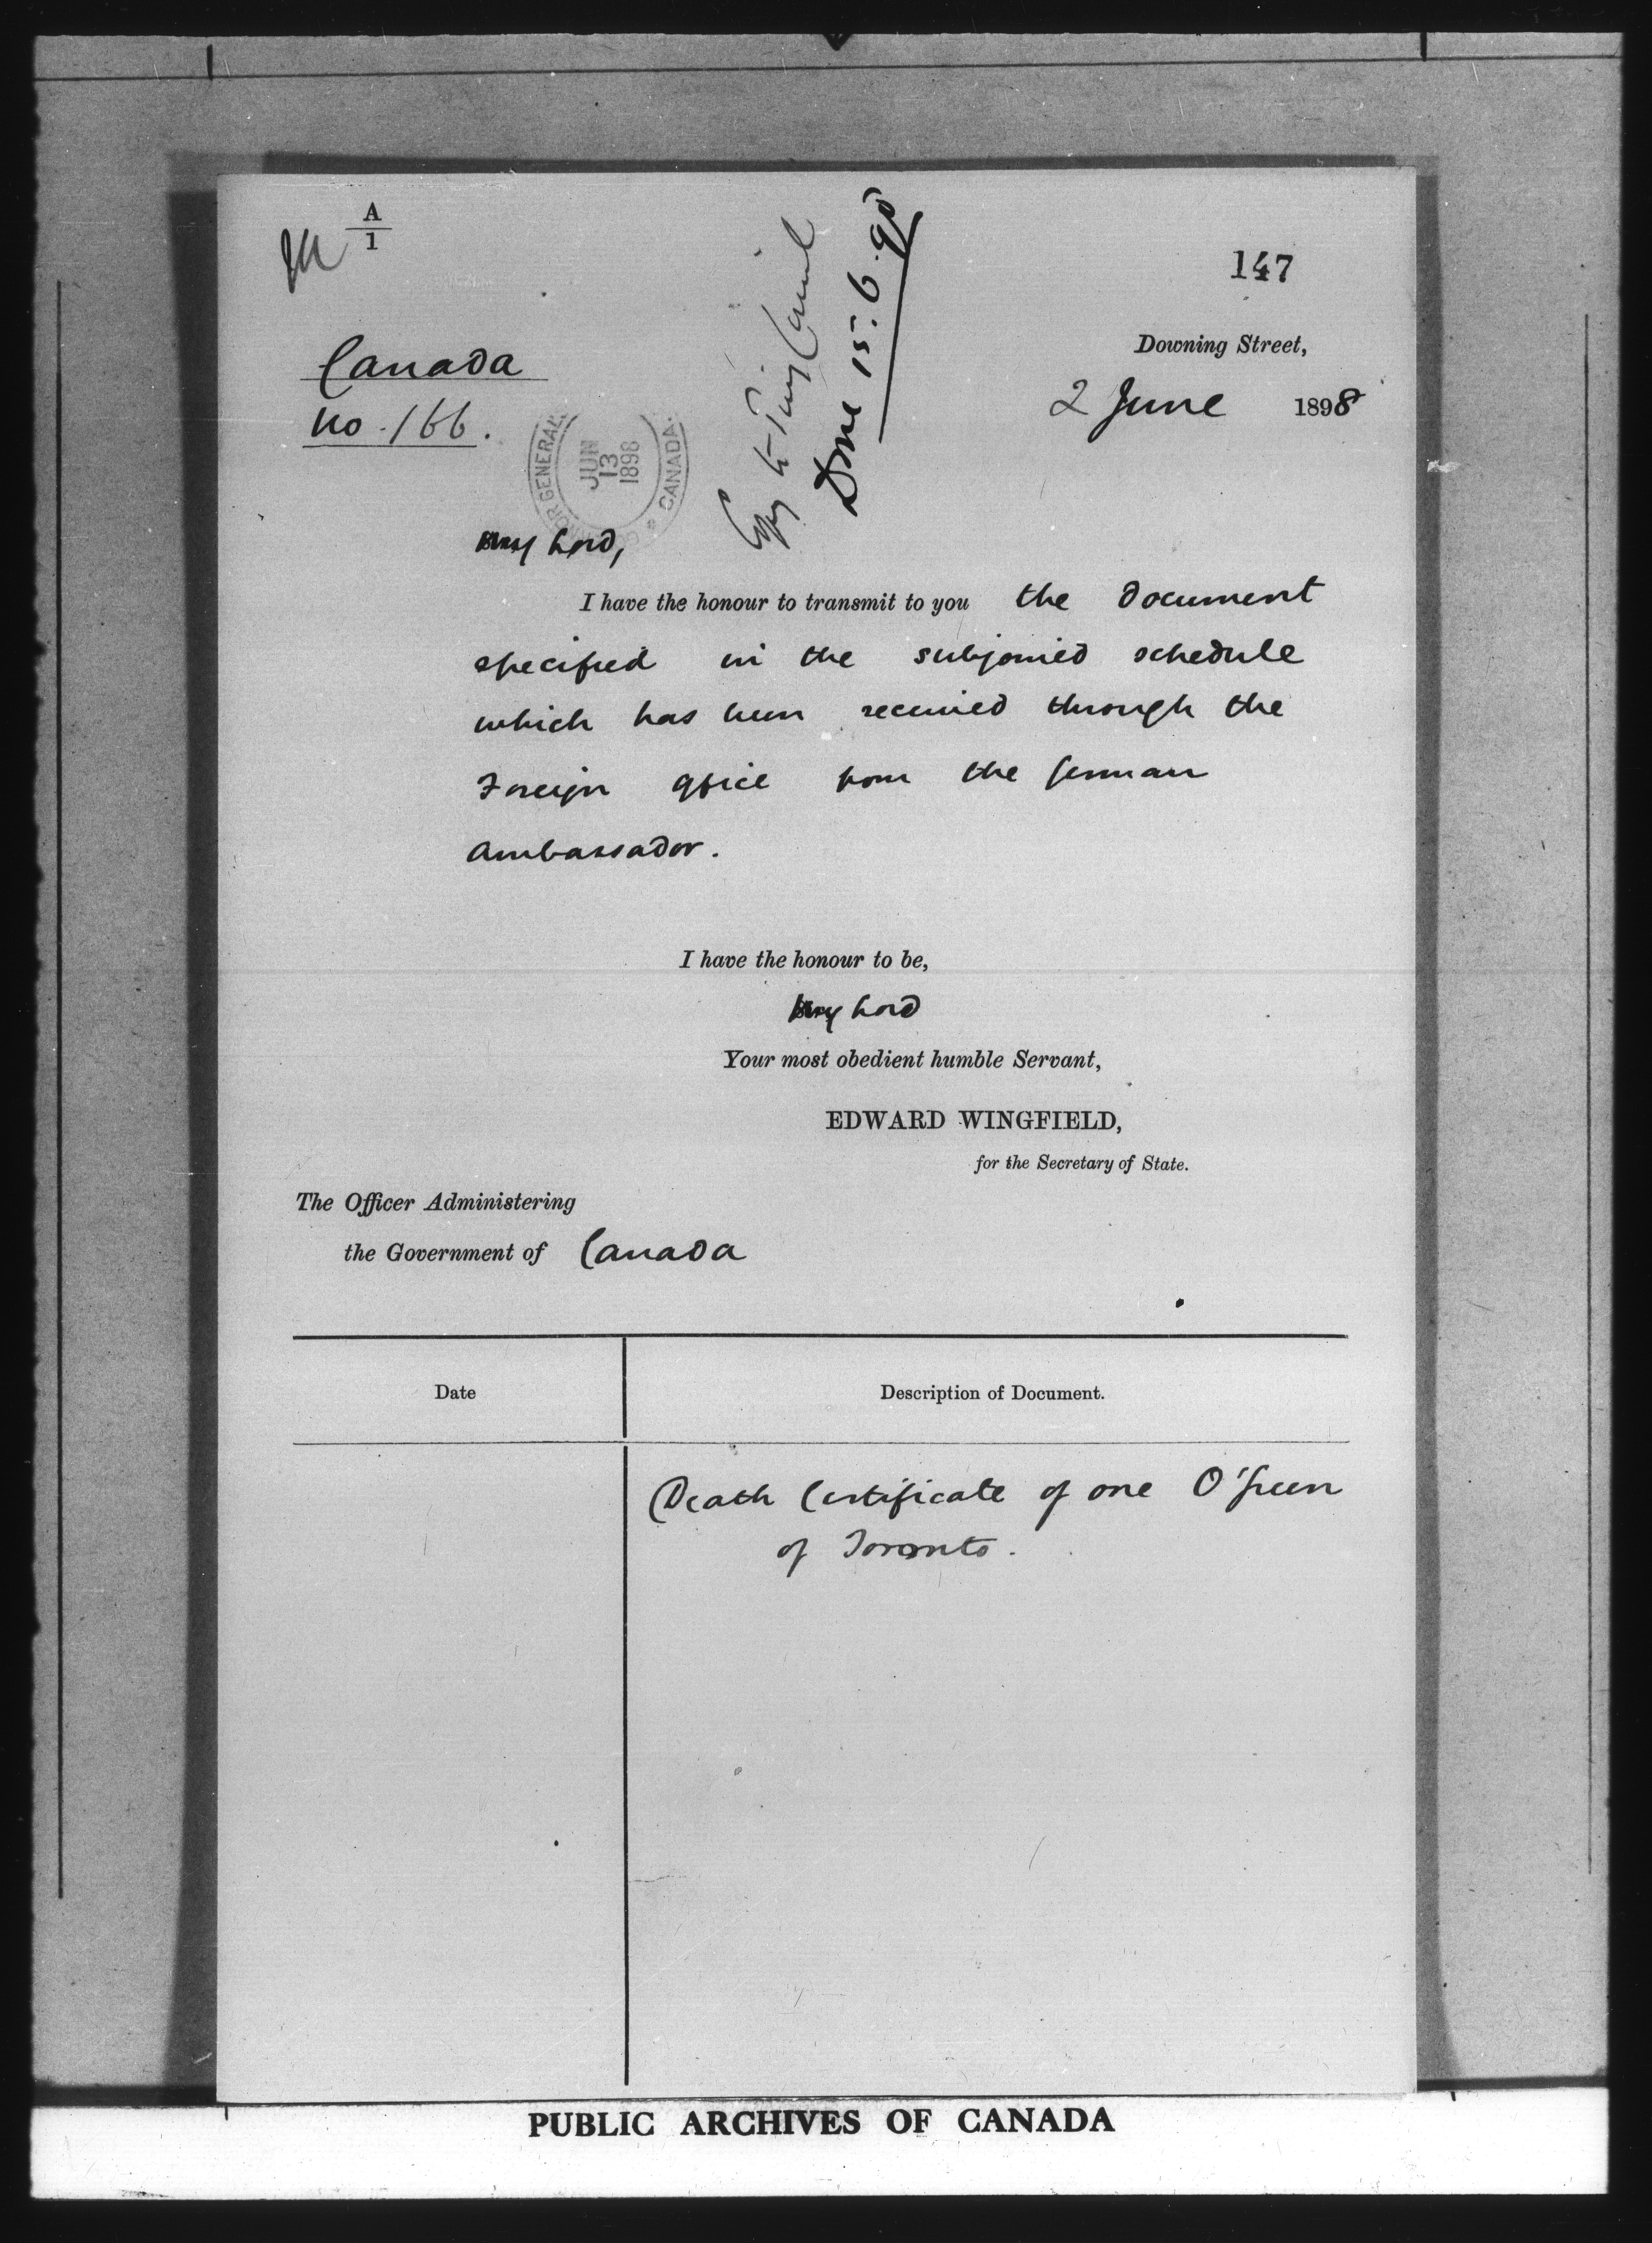 A
1
147
Downing Street,
2 June 1898
Canada
No. 166.
Copy to Privy Council
Done 15.6.98
OR GENERAL
JUN
13
1898
CANADA
My Lord,
I have the honour to transmit to you the document
specified in the subjoined schedule
which has been received through the
Foreign Office from the German
Ambassador.
I have the honour to be,
My Lord
Your most obedient humble Servant,
EDWARD WINGFIELD,
for the Secretary of State.
The Officer Administering
the Government of Canada
Date Description of Document.
Death Certificate of one O'Green
of Toronto.
PUBLIC ARCHIVES OF CANADA